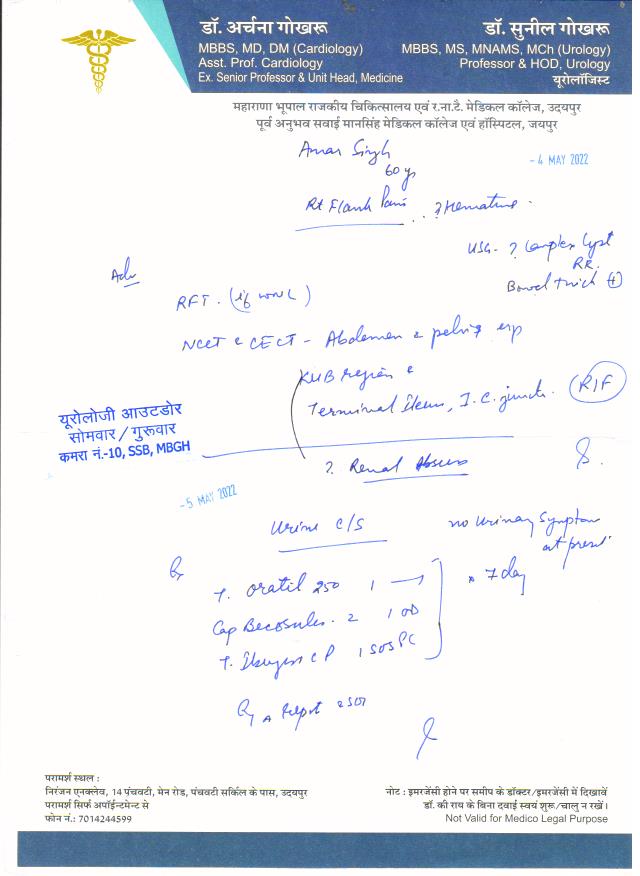 डॉ. अर्चना गोखरू
MBBS, MD, DM (Cardiology)
Asst. Prof. Cardiology
Ex. Senior Professor & Unit Head, Medicine
डॉ. सुनील गोखरू
MBBS, MS, MNAMS, MCh (Urology)
Professor & HOD, Urology
यूरोलॉजिस्ट
महाराणा भूपाल राजकीय चिकित्सालय एवं र.ना.टै. मेडिकल कॉलेज, उदयपुर
पूर्व अनुभव सवाई मानसिंह मेडिकल कॉलेज एवं हॉस्पिटल, जयपुर
Amar Singh
60 y
- 4 MAY 2022
Rt Flank Pain ... ? Hematuria
USG - ? Complex Cyst
RK
Bowel thick (+)
Adv
RFT. (if WNL)
NCCT & CECT - Abdomen & pelvis esp
KUB region &
Terminal Ileum, I.C. junct. (RIF)
यूरोलोजी आउटडोर
सोमवार / गुरूवार
कमरा नं.-10, SSB, MBGH
? Renal Abscess
- 5 MAY 2022
Urine C/S
no Urinary Symptom
at present
Rx
T. Oratil 250 1 x 7 day
Cap Becosules. 2 1 OD
T. CP 1 SOS PC
Report
परामर्श स्थल :
निरंजन एनक्लेव, 14 पंचवटी, मेन रोड, पंचवटी सर्किल के पास, उदयपुर
परामर्श सिर्फ अपॉईन्टमेन्ट से
फोन नं.: 7014244599
नोट : इमरजेंसी होने पर समीप के डॉक्टर/इमरजेंसी में दिखावें
डॉ. की राय के बिना दवाई स्वयं शुरू/चालु न रखें।
Not Valid for Medico Legal Purpose